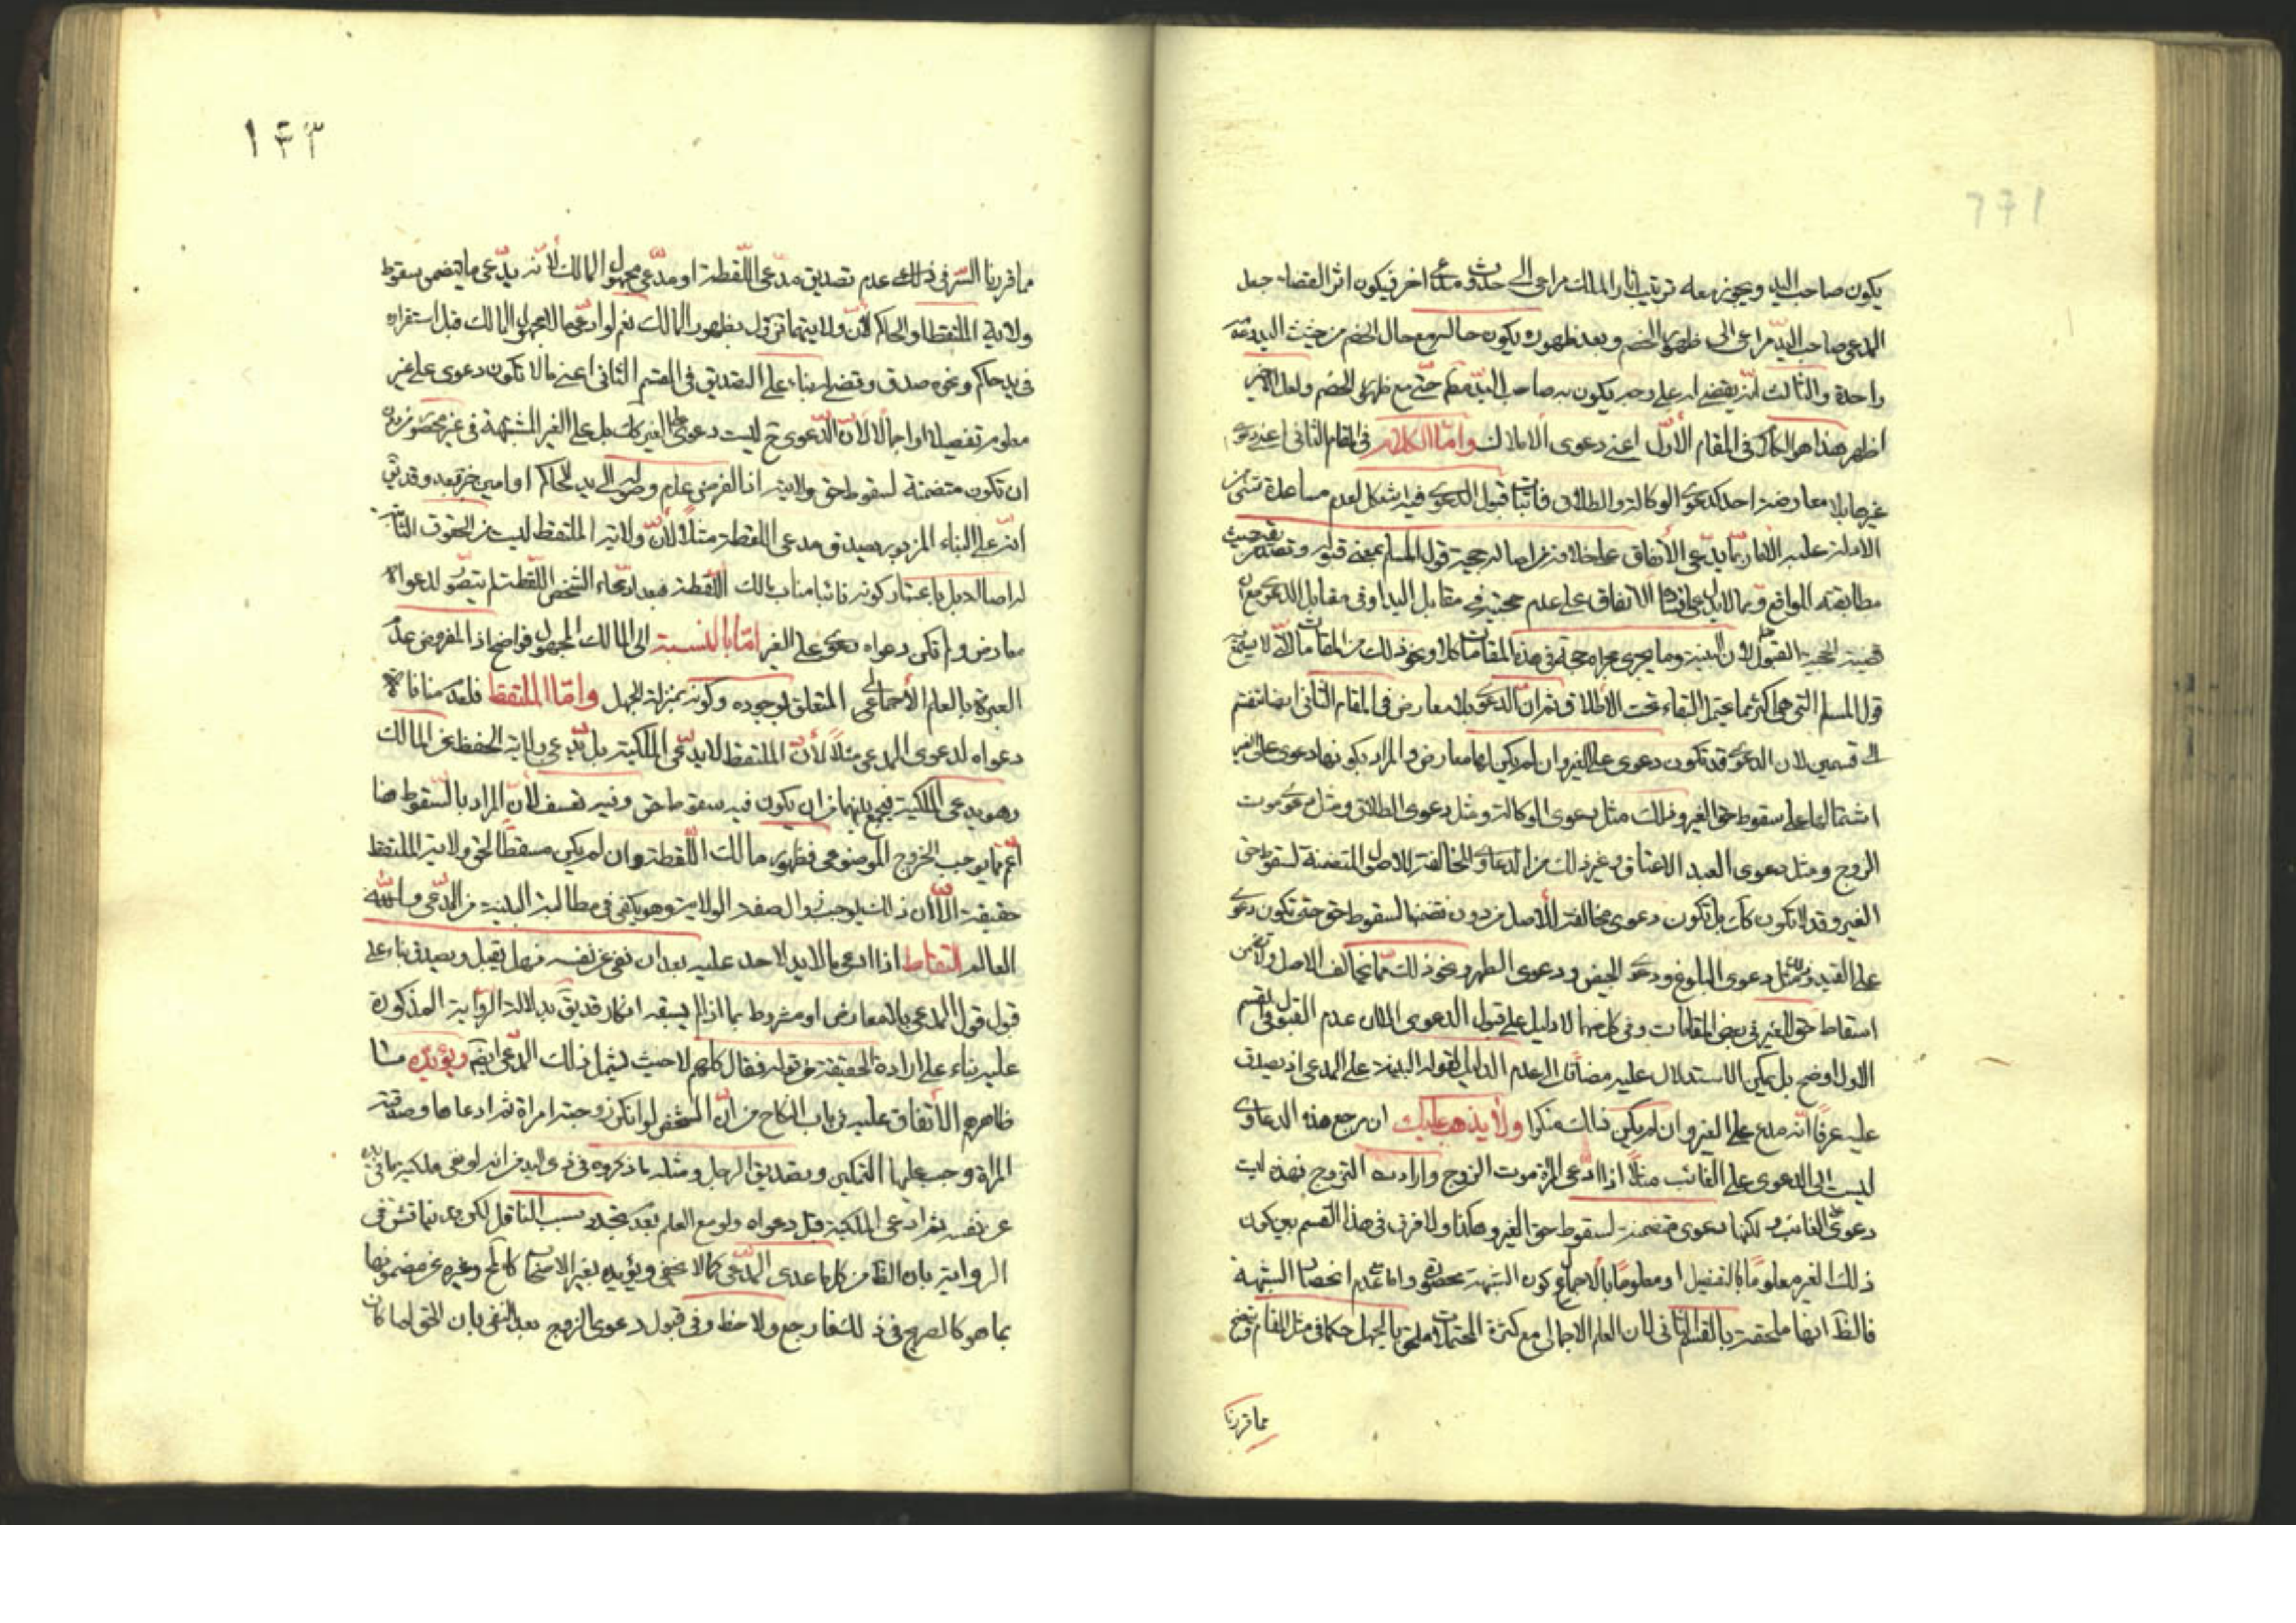 يكون صاحب اليد ويجوز معه ترتيب اثار الملك مراعى الى حدوث مدع اخر فيكون اثر القضاء جعل
المدعى صاحب اليد مراعى الى ظهور الخصم وبعد ظهوره يكون حاله مع حال الخصم من حيث اليد مرتبة
واحدة والثالث انه يقضى له على وجه يكون به صاحب اليد مطلقا حتى مع ظهور الخصم ولعل الاخير
اظهر هذا هو الكلام فى المقام الاول اعنى دعوى الاملاك واما الكلام فى المقام الثانى اعنى دعوى
غيرها بلا معارضة احد كدعوى الوكالة والطلاق فاثبات قبول الدعوى فيه اشكل لعدم مساعدة شئ من
الادلة عليه الا ما ربما يدعى الاتفاق على خلافه من اصالة حجية قول المسلم بمعنى قبوله وتصديقه من حيث
مطابقته الواقع وربما لا يدعى افتتاها الاتفاق على عدم حجيته فى مقابل اليد او فى مقابل الدعوى مع ان
قضية الحجية القبول لان البينة وما يجرى مجراه حجة فى هذه المقامات كلا ونحو ذلك من المقامات مما لا يتبع
قول المسلم التى هى اكثر مما يحتمل البقاء تحت الاطلاق ثم ان الدعوى بلا معارض فى المقام الثانى ايضا تنقسم
الى قسمين لان الدعوى قد تكون دعوى على الغير وان لم يكن لها معارض والمراد بكونها دعوى على الغير
اشتمالها على سقوط حق الغير وذلك مثل دعوى الوكالة ومثل دعوى الطلاق ومثل دعوى موت
الزوج ومثل دعوى العبد الاعتاق وغير ذلك من الدعاوى المخالفة للاصل المتضمنة لسقوط حق
الغير وقد لا تكون كذلك بل تكون دعوى مخالفة للاصل من دون تضمنها لسقوط حق حتى تكون دعوى
على الغير ومثل دعوى البلوغ ودعوى الحيض ودعوى الطهر ونحو ذلك مما يخالف الاصل ولا يتضمن
اسقاط حق الغير فى بعض المقامات وفى كل منهما لا دليل على قبول الدعوى الا ان عدم القبول فى القسم
الاول اوضح بل يمكن الاستدلال عليه مضافا الى عدم الدليل بقوله البينة على المدعى اذ يصدق
عليه عرفا انه مدع على الغير وان لم يكن ذلك منكرا ولا يذهب عليك ان مرجع هذه الدعاوى
ليست الى الدعوى على الغائب مثلا اذا ادعى المراة موت الزوج وارادت التزويج فهذه ليست
دعوى على الغائب ولكنها دعوى متضمنة لسقوط حق الغير وهكذا ولا فرق فى هذا القسم بين كون
ذلك الغير معلوما بالتفصيل او معلوما بالاجمال وكون الشبهة محصورة واما مع عدم انحصار الشبهة
فالظ انها ملحقة بالقسم الثانى لان العلم الاجمالى مع كثرة المحتملات ملحق بالجهل حكما فى مثل المقام ويتضح
مما قررنا
١٤٣
مما قررنا السر فى ذلك عدم تصديق مدعى اللقطة او مدعى مجهول المالك لانه يدعى ما يتضمن سقوط
ولاية الملتقط او الحاكم لان ولايتهما تزول بظهور المالك نعم لو ادعى مال مجهول المالك قبل استقراره
فى يد حاكم ونحوه صدق وقضى له بناء على التصديق فى القسم الثانى اعنى ما لا تكون دعوى على غير
معلوم تفصيلا او اجمالا لان الدعوى ح ليست دعوى على الغير كذلك بل على الغير المشتبهة فى غير محصور من دون
ان تكون متضمنة لسقوط حق ولاية اذ الفرض عدم وصوله الى يد الحاكم او امين خرقبعد وقد يق
انه على البناء المزبور يصدق مدعى اللقطة مثلا لان ولاية الملتقط ليست من الحقوق الثابتة
له اصالة بل باعتبار كونه نائبا مناب مالك اللقطة فبعد ادعاء الشخص اللقطة لم يتصور لدعواه
معارض ولم تكن دعواه دعوى على الغير اما بالنسبة الى المالك المجهول فواضح اذ المفروض عدم
العبرة بالعلم الاجمالى المتعلق بوجوده وكونه بمنزلة الجهل واما الملتقط فلعدم منافاة
دعواه لدعوى المدعى مثلا لان الملتقط لا يدعى الملكية بل يدعى ولاية الحفظ عن المالك
وهو يدعى الملكية فيجمع بينهما من ان يكون فيه سقوط حق وفيه تعسف لان المراد بالسقوط هنا
اعم مما يوجب الخروج الموضوعى فظهور مالك اللقطة وان لم يكن مسقطا لحق ولاية الملتقط
حقيقة الا ان ذلك يوجب زوال صفة الولاية وهو يكفى فى مطالبة البينة من المدعى والله
العالم التقاط اذا ادعى مالا يد لاحد عليه بعد ان نفى عن نفسه فهل يقبل ويصدق بناء على
قبول قول المدعى بلا معارض او مشروط بما اذا لم يسبقه انكار قد يق بدلالة الرواية المذكورة
عليه بناء على ارادة الحقيقة من قوله فقال كلهم لا حيث يشمل ذلك المدعى ايضا ويؤيده ما
ظاهرهم الاتفاق عليه فى باب النكاح من ان الشخص لو انكر زوجية امراة ثم ادعاها وصدقته
المراة وجب عليها التمكين وبتصديق الرجل ومثله ما ذكروه فى ذى اليد من انه لو نفى ملكية ما فى يده
عن نفسه ثم ادعى الملكية قبل دعواه ولو مع العلم بعدم تجدد سبب الناقل لكن قد يناقش فى
الرواية بان الظ من كلها عدى المدعى كما لا يخفى ويؤيده بغير الامتحان كالحكم وغيره عن مضمونها
بما هو كالصريح فى ذلك فارجع ولاحظ وفى قبول دعوى الزوج بعد النفى بان الحق لما كان